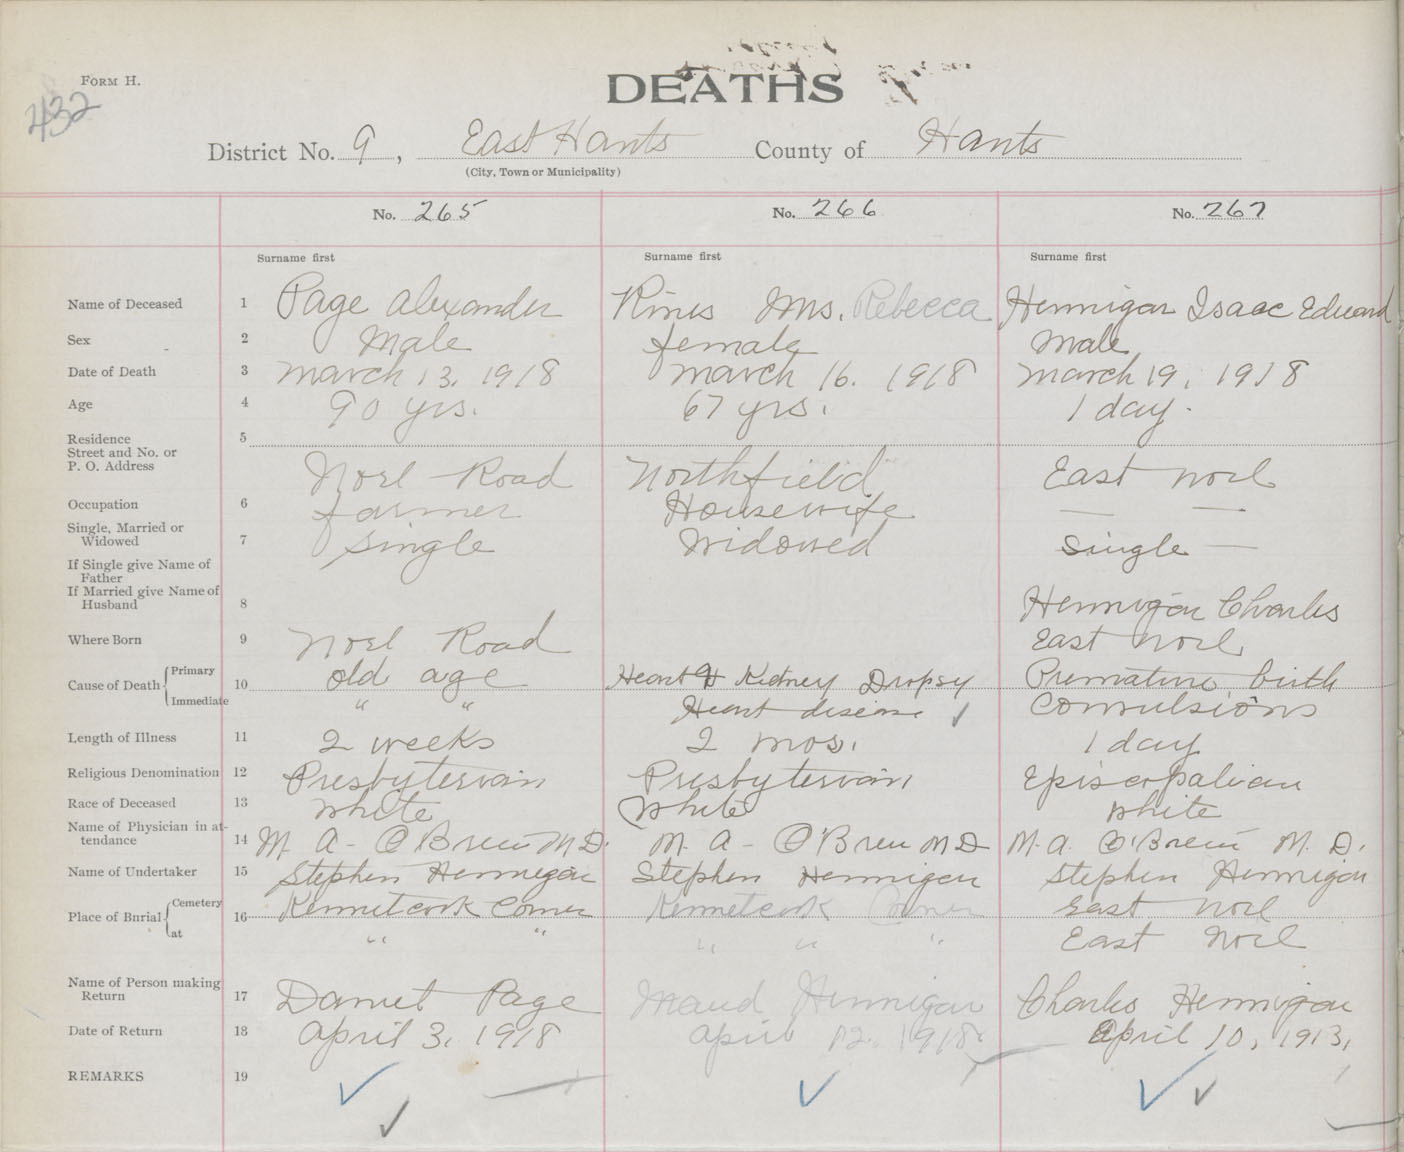 432
FORM H.
DEATHS
District No. 9, East Hants County of Hants
(City, Town or Municipality)
No. 265 No. 266 No. 267
Surname first Surname first Surname first
Name of Deceased 1 Page Alexander Rines Mrs. Rebecca Hennigar Isaac Edward
Sex 2 Male female Male
Date of Death 3 March 13, 1918 March 16. 1918 March 19, 1918
Age 4 90 yrs. 67 yrs. 1 day.
Residence 5
Street and No. or
P. O. Address Noel Road Northfield East Noel
Occupation 6 farmer Housewife — —
Single, Married or
Widowed 7 Single Widowed Single —
If Single give Name of
Father
If Married give Name of
Husband 8 Hennigar Charles
Where Born 9 Noel Road East Noel
Cause of Death { Primary 10 old age Heart & Kidney Dropsy Premature birth
Immediate " " Heart disease Convulsions
Length of Illness 11 2 weeks 2 mos. 1 day
Religious Denomination 12 Presbyterian Presbyterian Episcopalian
Race of Deceased 13 White White White
Name of Physician in at-
tendance 14 M. A- O'Brein M.D. M. A- O'Brein M D M. A. O'Brein M. D.
Name of Undertaker 15 Stephen Hennigar Stephen Hennigar Stephen Hennigar
Place of Burial { Cemetery 16 Kennetcook Corner Kennetcook Corner East Noel
at " " " " " East Noel
Name of Person making
Return 17 Daniel Page Maud Hennigar Charles Hennigar
Date of Return 18 April 3, 1918 April 12, 1918. April 10, 1913,
REMARKS 19